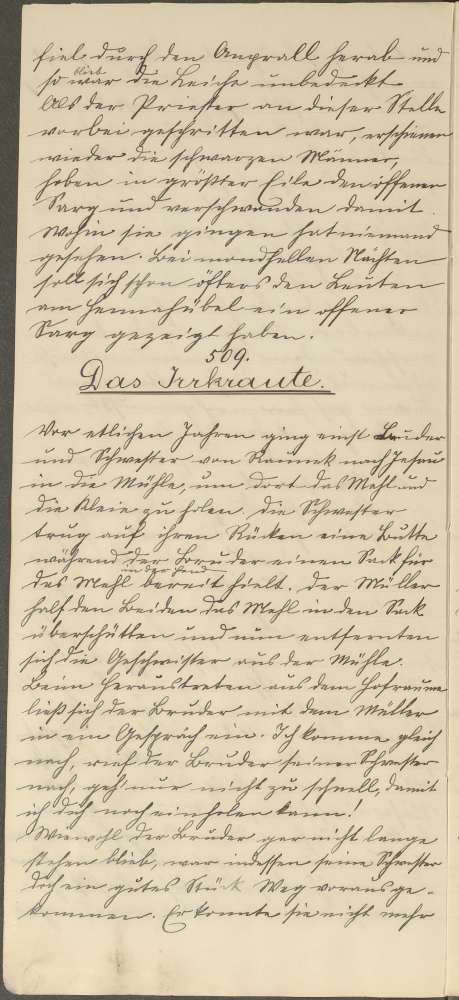 fiel durch den Anprall herab und
so blieb war die Leiche unbedeckt
Als der Priester an dieser Stelle
vorbei geschritten war, erschienen
wieder die schwarzen Männer,
hoben in größter Eile den offenen
Sarg und verschwanden damit.
Wohin sie gingen hat niemand
gesehen. Bei mondhellen Nächten
soll sich schon öfters den Leuten
am ein offener
Sarg gezeigt haben.
509.
Das Irrkraute.
Vor etlichen Jahren ging einst Bruder
und Schwester von nach
in die Mühle, um dort das Mehl und
die Kleie zu holen. Die Schwester
trug auf ihren Rücken eine Butte
während der Bruder einen Sack für
in der Hand
das Mehl bereit hielt. Der Müller
half den Beiden das Mehl in den Sack
überschütten und nun entfernten
sich die Geschwister aus der Mühle.
Beim Heraustreten aus dem Hofraume
ließ sich der Bruder mit dem Müller
in ein Gespräch ein. Ich komme gleich
nach, rief der Bruder seiner Schwester
nach, geh' nur nicht zu schnell, damit
ich dich noch einholen kann!
Wiewohl der Bruder gar nicht lange
stehen blieb, war indessen seine Schwester
doch ein gutes Stück Weg voraus ge-
kommen. Er konnte sie nicht mehr